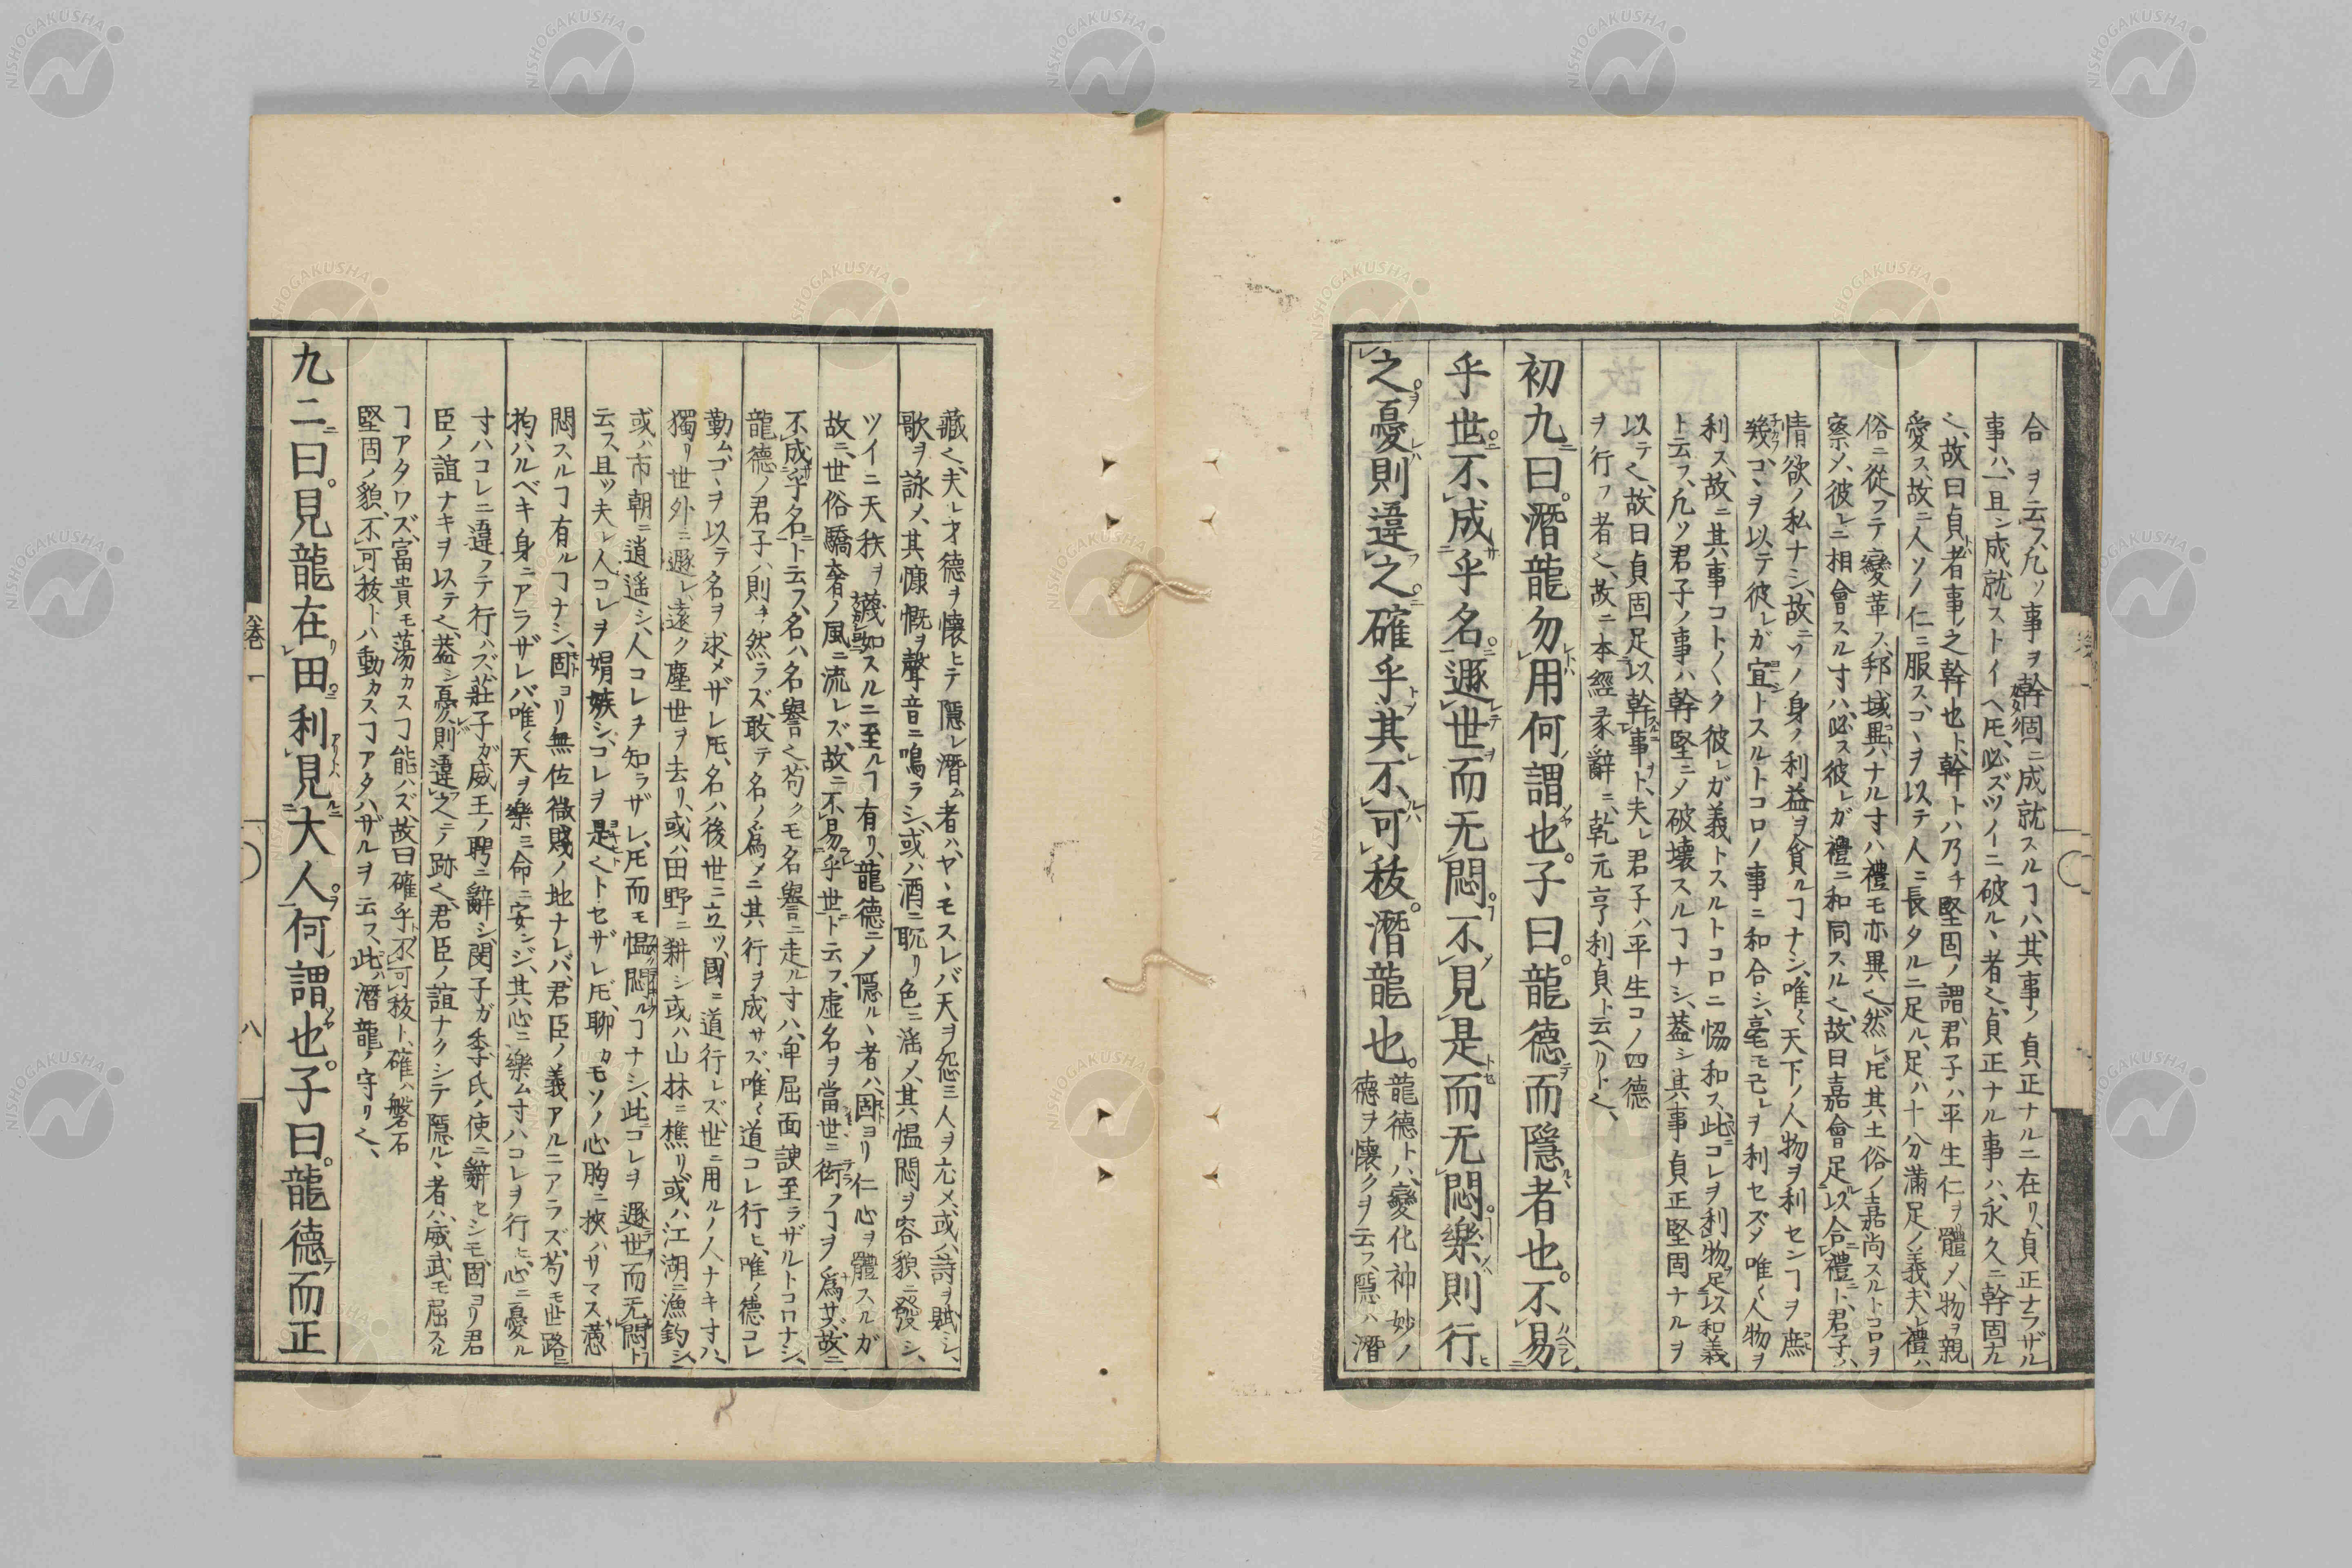 合ヲ云フ、凡ソ事ヲ幹固ニ成就スルヿハ、其事ノ貞正ナルニ在リ、貞正ナラザル
事ハ、一旦シ成就ストイヘ𪜈、必ズツイニ破ルヽ者也、貞正ナル事ハ、永久ニ幹固ナル
也、故曰貞者事之幹也ト、幹トハ乃チ堅固ノ謂、君子ハ平生仁ヲ體メ、物ヲ親
愛ス、故ニ人ソノ仁ニ服ス、コヽヲ以テ人ニ長タルニ足ル、足ハ十分滿足ノ義、夫レ禮ハ
俗ニ從フテ變革ス、邦域異ナル寸ハ禮モ亦異也、然レ𪜈其土俗ノ嘉尚スルトコロヲ
察メ、彼レニ相會スル寸ハ、必ス彼レガ禮ニ和同スル也、故曰嘉會足以合禮ト、君子ハ、
情欲ノ私ナシ、故ニソノ身ノ利益ヲ貪ルヿナシ、唯〱天下ノ人物ヲ利センヿヲ庶
幾フ、コヽヲ以テ彼レガ宜トスルトコロノ事ニ和合シ、毫モ己レヲ利セズメ唯〱人物ヲ
利ス、故ニ其事コトノク彼レガ義トスルトコロニ恊和ス、此コレヲ利物足以和義
ト云フ、凡ソ君子ノ事ハ幹堅ニメ破壊スルヿナシ、蓋シ其事貞正堅固ナルヲ
以テ也、故曰貞固足以幹事ト、夫レ君子ハ平生コノ四德
ヲ行フ者也、故ニ本經彖辭ニ、乾元亨利貞ト云ヘリト也、
初九曰。潛龍勿用何謂也。子曰。龍德而隱者也。不易
乎世不成乎名。遯世而无悶。不見是而无悶。樂則行
之。憂則違之。確乎其不可拔。潛龍也。
龍德トハ、變化神妙ノ
德ヲ懷クヲ云フ、隱ハ潛
藏也、夫レ才德ヲ懷ヒテ隱レ潛ム者ハ、ヤヽモスレバ天ヲ怨ミ人ヲ尤メ、或ハ詩ヲ賦シ、
歌ヲ詠メ、其慷慨ヲ聲音ニ鳴ラシ、或ハ酒ニ耽リ色ニ淫メ、其慍悶ヲ容貌ニ發シ、
ツイニ天秩ヲ蔑如スルニ至ルヿ有リ、龍德ニメ隱ルヽ者ハ、固ヨリ仁心ヲ體スルガ
故ニ、世俗驕奢ノ風ニ流レズ、故ニ不易乎世ト云フ、虛名ヲ當世ニ衒フヿヲ爲サズ、故ニ
不成乎名ト云フ、名ハ名譽也、苟クモ名譽ニ走ル寸ハ、卑屈面諛至ラザルトコロナシ、
龍德ノ君子ハ則チ然ラズ、敢テ名ノ爲メニ其行ヲ成サズ、唯〱道コレ行ヒ、唯〱德コレ
勤ム、コヽヲ以テ名ヲ求メザレ𪜈、名ハ後世ニ立ツ、國ニ道行レズ、世ニ用ルノ人ナキ寸ハ、
獨リ世外ニ遯レ、遠ク塵世ヲ去リ、或ハ田野ニ耕シ或ハ山林ニ樵リ、或ハ江湖ニ漁釣シ、
或ハ市朝ニ逍遥シ、人コレヲ知ラザレ𪜈而モ慍悶ヿナシ、此コレヲ遯世而无悶ト
云フ、且ツ夫レ人コレヲ娟嫉シ、コレヲ是也トセザレ𪜈、聊カモソノ心胸ニ挾ハサマス懣
悶スルヿ有ルヿナシ、固ヨリ無位微賤ノ地ナレバ、君臣ノ義アルニアラズ、苟モ世路ニ
拘ハルベキ身ニアラザレバ、唯〱天ヲ樂ミ命ニ安ンジ、其心ニ樂ム寸ハコレヲ行ヒ、心ニ憂ル
寸ハコレニ違フテ行ハズ、莊子ガ威王ノ聘ニ辭シ、閔子ガ季氏ノ使ニ辭セシモ、固ヨリ君
臣ノ誼ナキヲ以テ也、蓋シ憂則違之ニテノ跡也、君臣ノ誼ナクシテ隱ルヽ者ハ、威武モ屈スル
ヿアタワズ、富貴モ蕩カスヿ能ハズ、故曰確乎不可拔ト、確ハ磐石
堅固ノ貌、不可拔トハ動カスヿアタハザルヲ云フ、此潛龍ノ守リ也、
九二曰。見龍在田。利見大人。何謂也。子曰。龍德而正
卷一
八